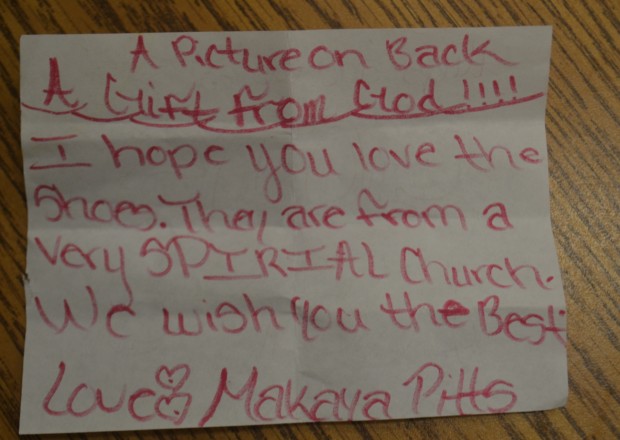 A Picture on Back
A Gift from God!!!!
I hope you love the
Shoes. They are from a
very SPIRIAL Church.
We wish you the Best
Love Makaya Pitts